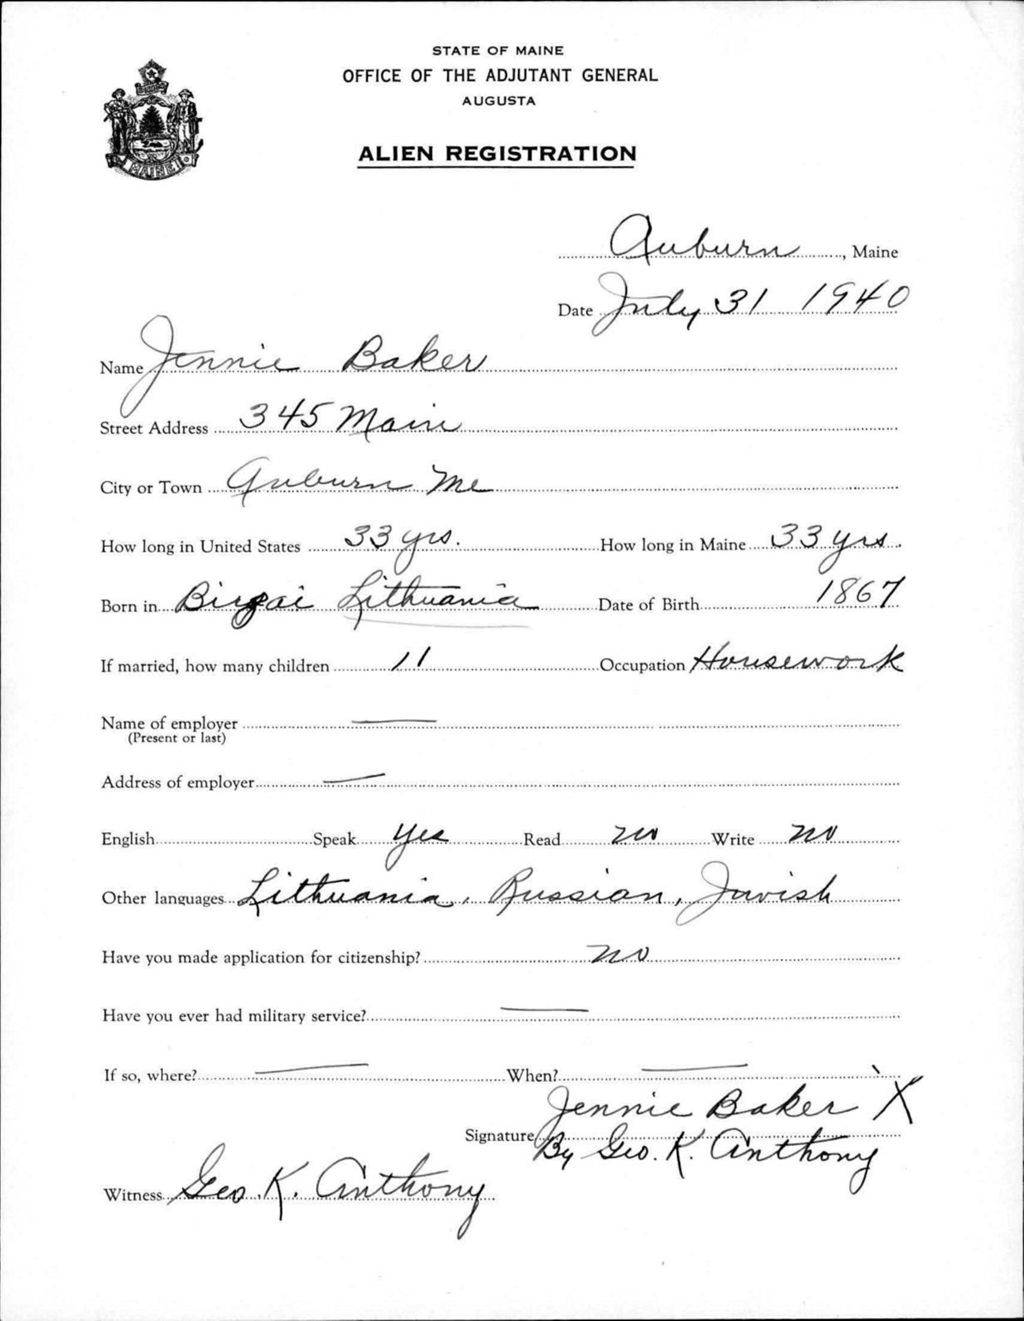 STATE OF MAINE
OFFICE OF THE ADJUTANT GENERAL
AUGUSTA
ALIEN REGISTRATION
MAINE
Auburn, Maine
Date July 31 1940
Name Jennie Baker
Street Address 345 Main
City or Town Auburn Me
How long in United States 33 yrs. How long in Maine 33 yrs.
Born in Birgai Lithuania Date of Birth 1867
If married, how many children 11 Occupation Housework
Name of employer —
(Present or last)
Address of employer —
English Speak Yes Read no Write no
Other languages Lithuania, Russian, Javish
Have you made application for citizenship? no
Have you ever had military service? —
If so, where? — When? —
Jennie Baker X
Signature By Geo. K. Anthony
Witness Geo K. Anthony